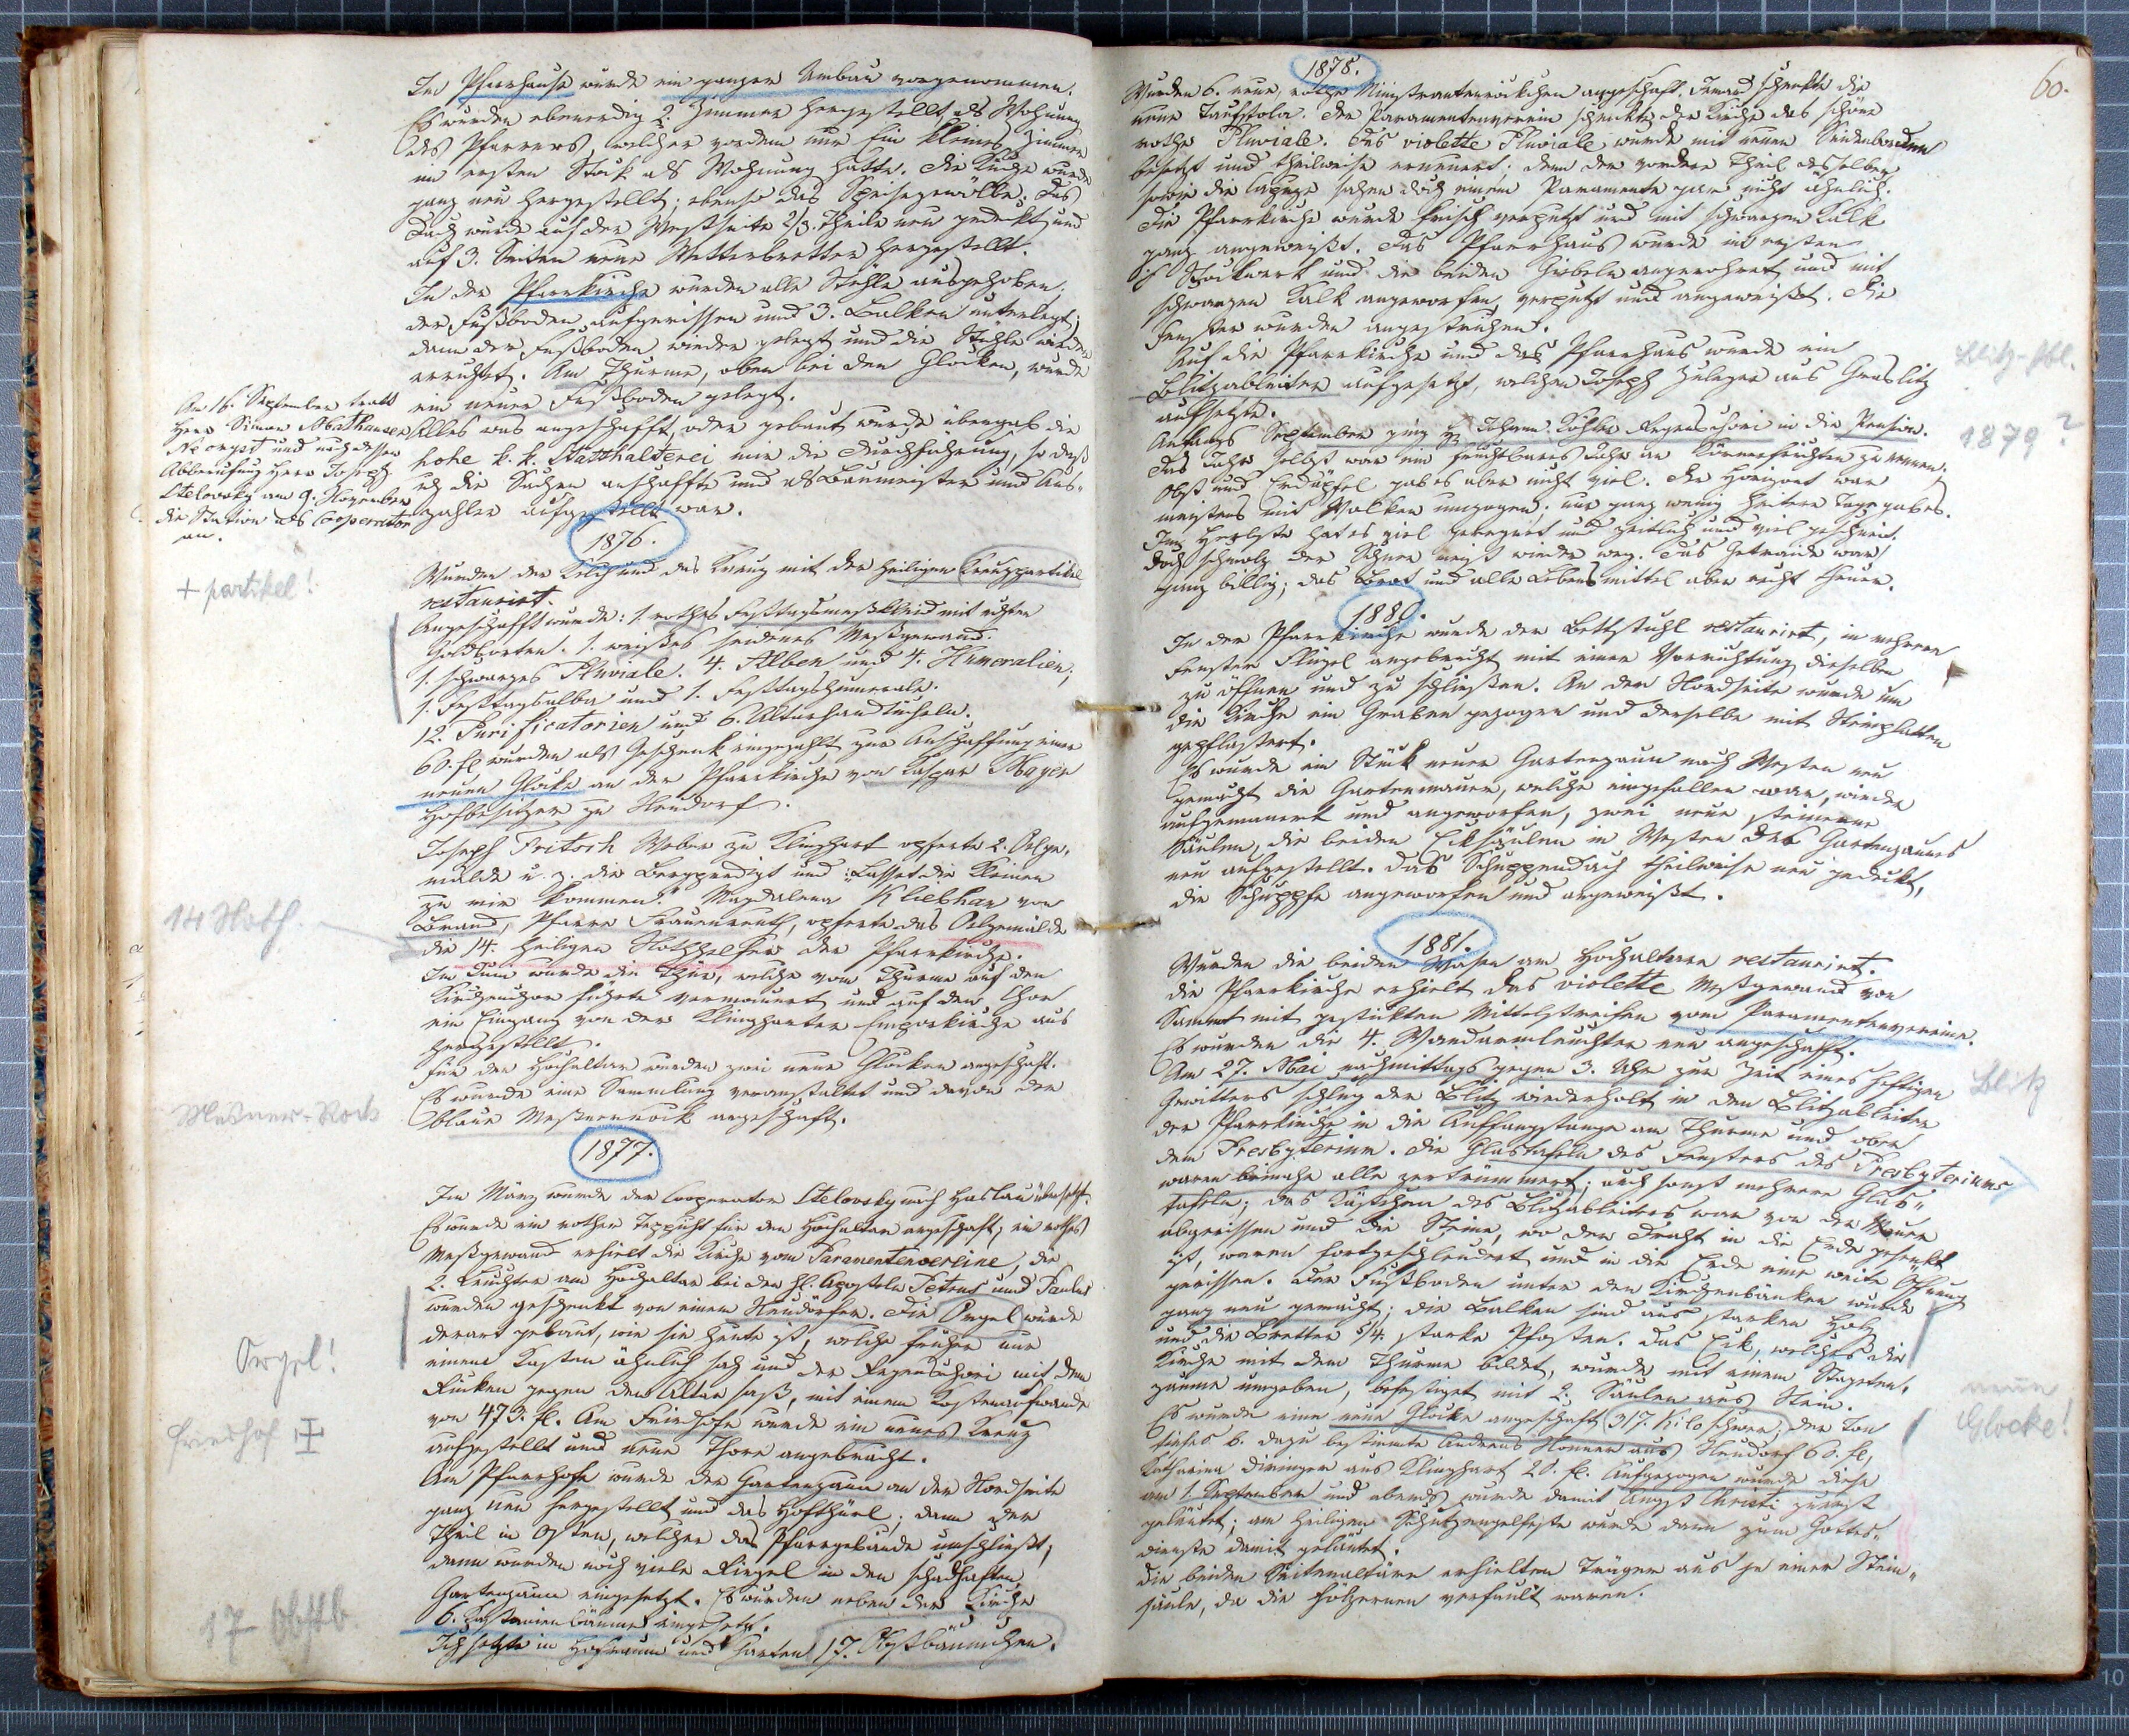 Im Pfarrhause wurde ein ganzer Umbau vorgenommen.
Es wurden ebenerdig 2. Zimmer hergestellt, als Wohnung
des Pfarrers, welcher vordem nur Ein kleines Zimmer
im ersten Stock als Wohnung hatte. Die Küche wurde
ganz neu hergestellt; ebenso das Speisegewölbe; das
Dach wurde auf der Westseite 2/3. Theile neu gedeckt und
auf 3. Seiten neue Wetterbretter hergestellt.
In der Pfarrkirche wurden alle Stühle ausgehoben,
der Fußboden aufgerissen und 3. Balken unterlegt;
dann der Fußboden wieder gelegt und die Stühle wieder
errichtet. Am Thurme, oben bei den Glocken, wurde
ein neuer Fußboden gelegt.
Alles was angeschafft, oder gebaut wurde übergab die
hohe k. k. Statthalterei mir die Durchführung, so daß
ich die Sachen anschaffte und als Baumeister und Aus-
zahler aufgestellt war.
Am 16. September tratt
Herr Simon Mathauser
und nach dessen
Abberufung Herr Joseph
Stelovsky am 9. November
die Station als Cooperator
an.
1876.
Wurden der Kelch und das Kreuz mit der heiligen Kreuzpartikel
restaurirt.
+ partikel!
Angeschafft wurde: 1. rothes Festtagsmeßkleid mit echten
Goldborten. 1. weißes seidenes Meßgewand.
1. schwarzes Pluviale. 4. Alben und 4. Humeralien;
1. Festtagsalba und 1. Festtagshumerale.
12. Purificatorien und 6. Altarhandtücheln.
60. fl wurden als Geschenk eingezahlt zur Anschaffung einer
neuen Glocke an der Pfarrkirche von Kaspar Mayer
Hofbesitzer zu Neudorf.
Joseph Fritsch Weber zu Klinghart opferte 2. Oelge-
mälde u. z. die Bergpredigt und „Lasset die Kleinen
zu mir kommen." Magdalena Kliebhan von
Brand, Pfarre Frauenreuth, opferte das Oelgemälde
14 Noth.
die 14. heiligen Nothhelfer der Pfarrkirche.
Im Juni wurde die Thür, welche vom Thurme auf den
Kirchenchor führte vermauert und auf den Chor
ein Eingang von der Klingharter Emporkirche aus
hergestellt.
Für den Hochaltar wurden zwei neue Glocken angeschaft.
Es wurde eine Sammlung veranstaltet und davon der
blaue Meßnerrock angeschaft.
Meßner-Rock
1877.
Im März wurde der Cooperator Stelovsky nach Haslau übersetzt.
Es wurde ein rother Teppicht für den Hochaltar angeschaft; ein rothes
Meßgewand erhielt die Kirche vom Paramentenvereine, die
2. Leuchter am Hochaltar bei den hl. Aposteln Petrus und Paulus
wurden geschenkt von einem Neudörfer. Die Orgel wurde
derart gebaut, wie sie heute ist, welche früher nur
Orgel!
einem Kasten ähnlich sah und der Regenschori mit dem
Rücken gegen den Altar saß, mit einem Kostenaufwande
von 473. fl. Am Friedhofe wurde ein neues Kreuz
Friedhof
aufgestellt und neue Thore angebracht.
Am Pfarrhofe wurde der Gartenzaun an der Nordseite
ganz neu hergestellt und das Hofthürl; dann der
Theil in Osten, welcher das Pfarrgebäude umschließt,
dann wurden noch viele Riegel in den schadhaften
Gartenzaun eingesetzt. Es wurden neben der Kirche
6. Kastanienbäume eingesetzt.
17 Obstb.
Ich setzte im Hofraum und Garten 17. Obstbäumchen.
60.
1878.
Wurden 6. neue, rothe Ministrantenröckchen angeschaft. Jemand schenkte die
neue Taufstola. Der Paramentenverein schenkte der Kirche das schöne
rothe Pluviale. Das violette Pluviale wurde mit neuen Seidenborten
besetzt und theilweise erneuert; denn der vordere Theil desselben
sowie die Capuze sahen doch einem Paramente gar nicht ähnlich.
Die Pfarrkirche wurde frisch verputzt und mit schwarzen Kalk
ganz angeweißt. Das Pfarrhaus wurde im ersten
Stockwerk und die beiden Giebeln angerohret und mit
schwarzen Kalk angeworfen, verputzt und angeweißt. Die
Fenster wurden angestrichen.
Auf die Pfarrkirche und das Pfarrhaus wurde ein
Blitzableiter aufgesetzt, welchen Joseph Zuleger aus Graslitz
Blitz-Abl.
aufsetzte.
Anfangs September ging H. Johann Köhler Regenschori in die Pension.
1879?
Das Jahr selbst war ein fruchtbares Jahr an Körnerfrüchten zu nennen;
Obst und Erdäpfel gab es aber nicht viel. Der Horizont war
meistens mit Wolken umzogen; nur ganz wenig heitere Tage gab es.
Im Herbste hat es viel geregnet und zeitlich und viel geschneit.
doch schmolz der Schnee meist wieder weg. Das Getraide war
ganz billig; das Brot und alle Lebensmittel aber recht theuer.
1880.
In der Pfarrkirche wurde der Bettstuhl restaurirt, in mehrern
Fenster Flügel angebracht mit einer Vorrichtung dieselben
zu öffnen und zu schließen. An der Nordseite wurde um
die Kirche ein Graben gezogen und derselbe mit Steinplatten
gepflastert.
Es wurde ein Stück neuer Gartenzaun nach Westen neu
gemacht die Gartenmauer, welche eingefallen war, wieder
aufgemauert und angeworfen, zwei neue steinerne
Säulen, die beiden Ecksäulen in Westen des Gartenzaunes
neu aufgestellt. Das Schuppendach theilweise neu gedeckt,
die Schuppfe angeworfen und angeweißt.
1881.
Wurden die beiden Vasen am Hochaltare restaurirt.
Die Pfarrkirche erhielt das violette Meßgewand von
Sammt mit gestickten Mittelstreifen vom Paramentenvereine.
Es wurden die 4. Wandarmleuchter neu angeschaft.
Am 27. Mai nachmittags gegen 3. Uhr zur Zeit eines heftigen
Gewitters schlug der Blitz wiederholt in den Blitzableiter
Blitz
der Pfarrkirche in die Auffangstange am Thurme und ober
dem Presbyterium. Die Glastafeln des Fensters des Presbyteriums
waren beinahe alle zertrümmert; auch sonst mehrere Glas-
tafeln; das Kästchen des Blitzableiters war von der Mauer
abgerissen und die Steine, wo der Draht in die Erde gesenkt
ist, waren fortgeschleudert und in die Erde eine weite Öffnung
gerissen. Der Fußboden unter den Kirchenbänken wurde
ganz neu gemacht; die Balken sind aus starken Holz
und die Bretter 5/4. starke Pfosten. Das Eck, welches die
Kirche mit dem Thurme bildet, wurde mit einem Stageten-
zaune umgeben, befestiget mit 2. Säulen aus Stein.
Es wurde eine neue Glocke angeschaft 317. Kilo schwer; der Ton
neue
Glocke!
dazu bestimmte Andreas aus Neudorf 60. fl,
Katharina aus Klinghart 20. fl. Aufgezogen wurde diese
am 1. September und abends wurde damit Angst Christi zuerst
geläutet; am heiligen Schutzengelfeste wurde dann zum Gottes-
dienste damit geläutet.
Die beiden Seitenaltäre erhielten Träger aus je einer Stein-
säule, da die hölzernen verfault waren.